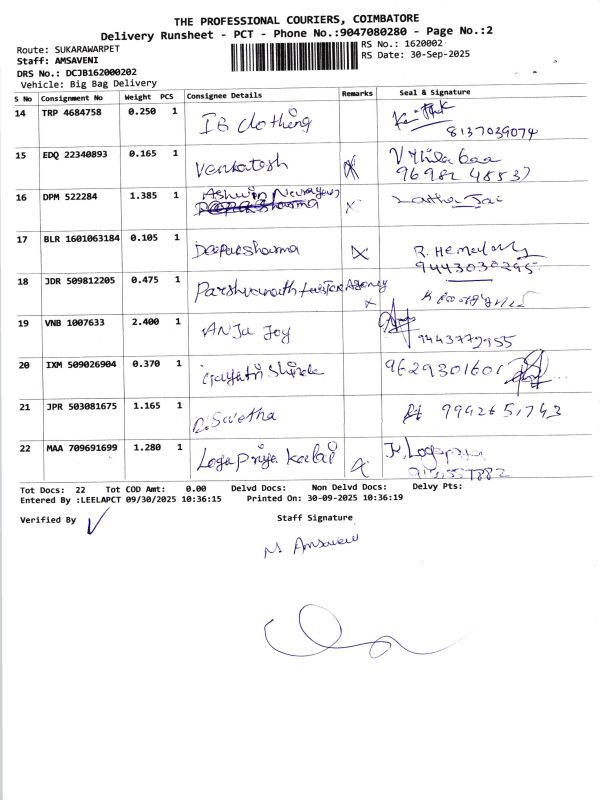 THE PROFESSIONAL COURIERS, COIMBATORE
Delivery Runsheet - PCT - Phone No.:9047080280 - Page No.:2
Route: SUKARAWARPET
RS No.: 1620002
Staff: AMSAVENI
RS Date: 30-Sep-2025
DRS No.: DCJB162000202
Vehicle: Big Bag Delivery
S No Consignment No Weight PCS Consignee Details Remarks Seal & Signature
14 TRP 4684758 0.250 1 IB Clothing
8137039074
15 EDQ 22340893 0.165 1 Venkatesh
96982 48537
16 DPM 522284 1.385 1 Ashwin
x
17 BLR 1601063184 0.105 1 Deepaksharma x R. Hemalatha
9443030295
18 JDR 509812205 0.475 1 Parshvanath Agency
x
19 VNB 1007633 2.400 1 ANJU JOY
9443772955
20 IXM 509026904 0.370 1 Gayatri Shinde 9629301601
21 JPR 503081675 1.165 1 D. Swetha 9942651743
22 MAA 709691699 1.280 1 Logapriya Kalai x
Tot Docs: 22 Tot COD Amt: 0.00 Delvd Docs: Non Delvd Docs: Delvy Pts:
Entered By :LEELAPCT 09/30/2025 10:36:15 Printed On: 30-09-2025 10:36:19
Verified By
Staff Signature
M Amsaveni